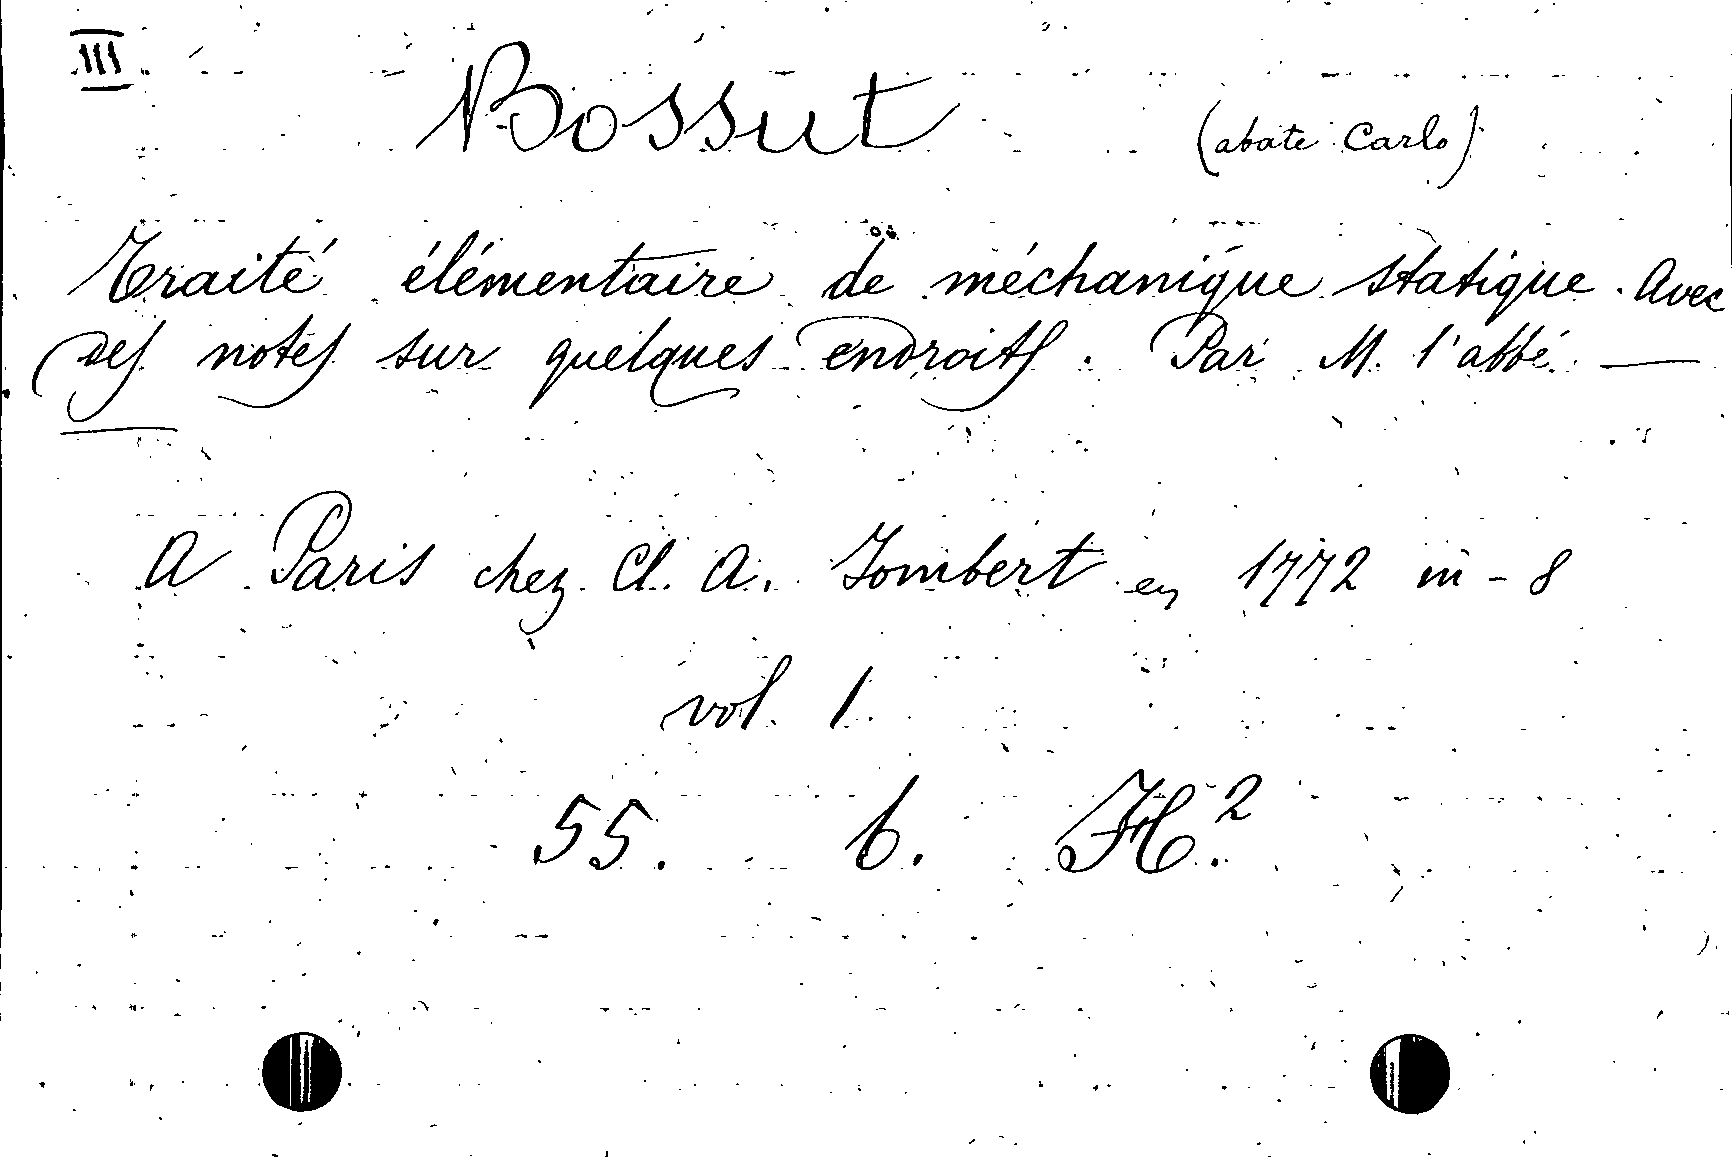 III
Bossut (abate Carlo)
Traité élémentaire de méchanique statique. Avec
des notes sur quelques endroits. Par M. l'abbé —
—
A Paris chez Cl. A. Jombert en 1772 in - 8
vol. 1.
55. 6. H.²